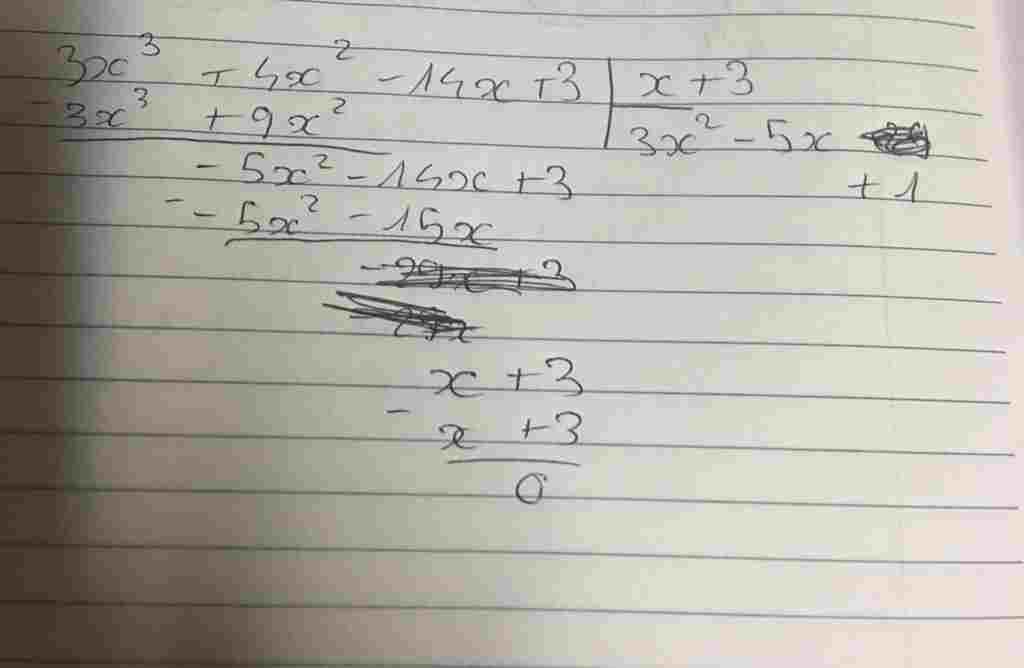 3x³ + 4x² - 14x + 3 | x + 3
- 3x³ + 9x² | 3x² - 5x
- 5x² - 14x + 3 + 1
- - 5x² - 15x
x + 3
- x + 3
0